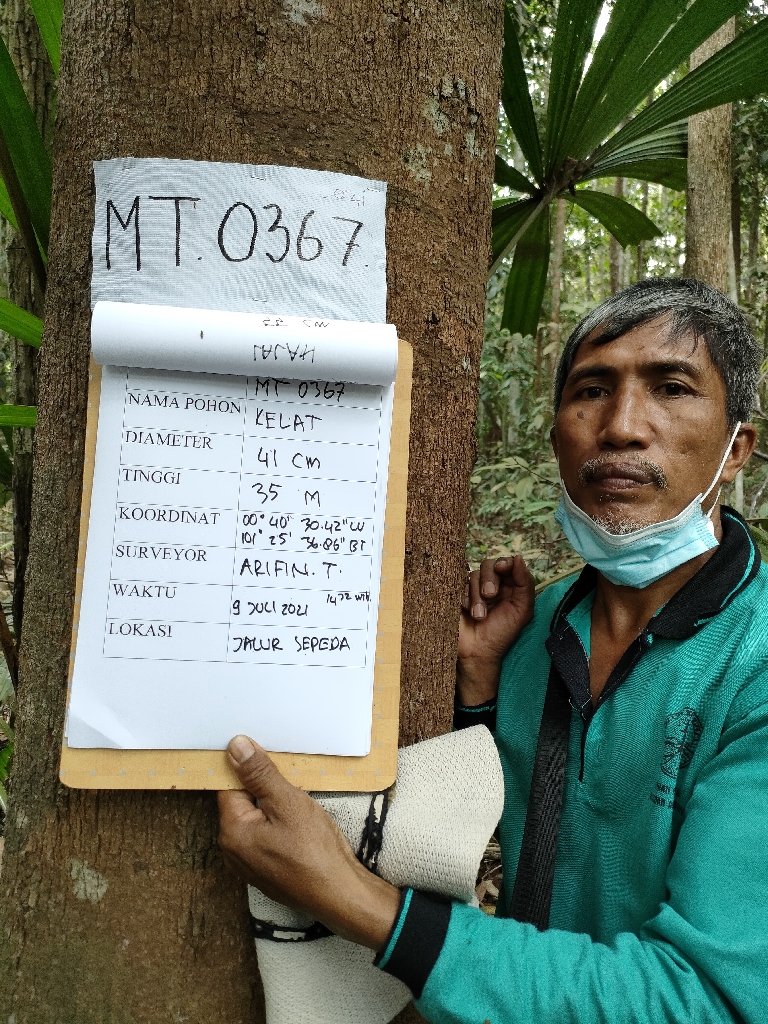 MT. 0367
MT 0367
NAMA POHON KELAT
DIAMETER 41 CM
TINGGI 35 M
KOORDINAT 00° 40' 30.42" LU
101° 25' 36.86" BT
SURVEYOR ARIFIN. T.
WAKTU 9 JULI 2021
LOKASI JALUR SEPEDA